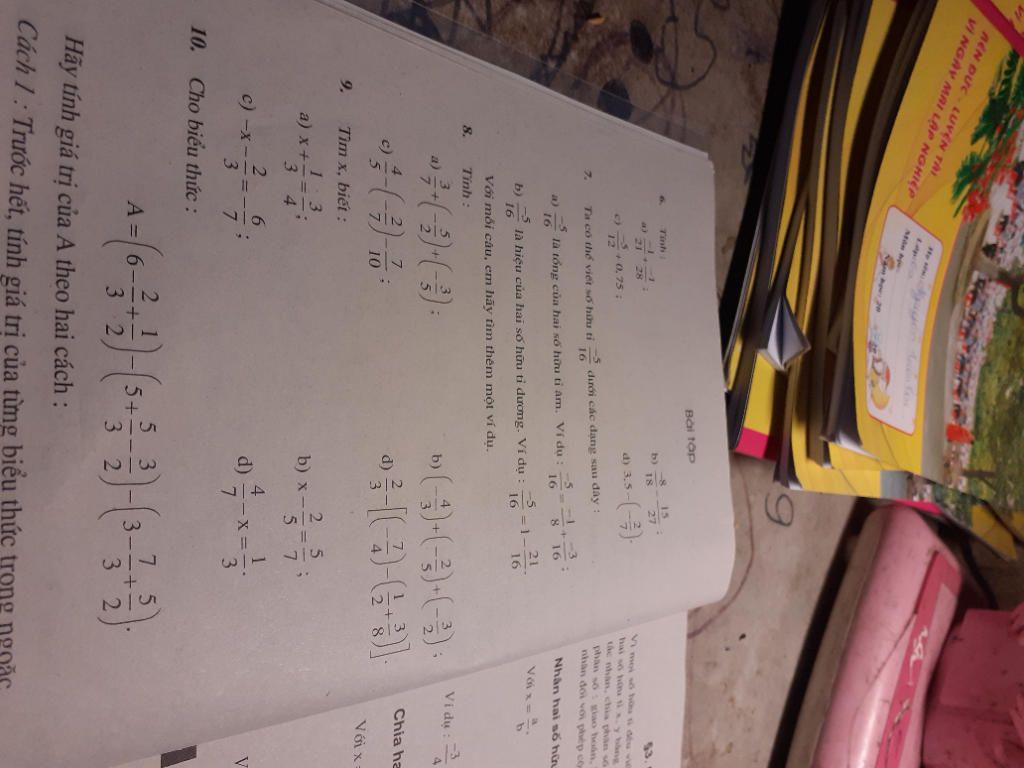 Bài tập
6. Tính :
a) $\frac{-1}{21} + \frac{-1}{28}$ ; b) $\frac{-8}{18} - \frac{15}{27}$ ;
c) $\frac{-5}{12} + 0,75$ ; d) $3,5 - \left(-\frac{2}{7}\right)$.
7. Ta có thể viết số hữu tỉ $\frac{-5}{16}$ dưới các dạng sau đây :
a) $\frac{-5}{16}$ là tổng của hai số hữu tỉ âm. Ví dụ : $\frac{-5}{16} = \frac{-1}{8} + \frac{-3}{16}$ ;
b) $\frac{-5}{16}$ là hiệu của hai số hữu tỉ dương. Ví dụ : $\frac{-5}{16} = 1 - \frac{21}{16}$.
Với mỗi câu, em hãy tìm thêm một ví dụ.
8. Tính :
a) $\frac{3}{7} + \left(-\frac{5}{2}\right) + \left(-\frac{3}{5}\right)$ ; b) $\left(-\frac{4}{3}\right) + \left(-\frac{2}{5}\right) + \left(-\frac{3}{2}\right)$ ;
c) $\frac{4}{5} - \left(-\frac{2}{7}\right) - \frac{7}{10}$ ; d) $\frac{2}{3} - \left[\left(-\frac{7}{4}\right) - \left(\frac{1}{2} + \frac{3}{8}\right)\right]$.
9. Tìm x, biết :
a) $x + \frac{1}{3} = \frac{3}{4}$ ; b) $x - \frac{2}{5} = \frac{5}{7}$ ;
c) $-x - \frac{2}{3} = -\frac{6}{7}$ ; d) $\frac{4}{7} - x = \frac{1}{3}$.
10. Cho biểu thức :
$A = \left(6 - \frac{2}{3} + \frac{1}{2}\right) - \left(5 + \frac{5}{3} - \frac{3}{2}\right) - \left(3 - \frac{7}{3} + \frac{5}{2}\right)$.
Hãy tính giá trị của A theo hai cách :
Cách 1 : Trước hết, tính giá trị của từng biểu thức trong ngoặc
§3.
Vì mọi số hữu tỉ đều viế
hai số hữu tỉ x, y bằng
tắc nhân, chia phân số
phân số : giao hoán,
nhân đối với phép cộ
Nhân hai số hữu
Với $x = \frac{a}{b}$,
Ví dụ : $\frac{-3}{4}$
Chia ha
Với x =
V
RÈN ĐỨC - LUYỆN TÀI
VÌ NGÀY MAI LẬP NGHIỆP
Môn học:
9